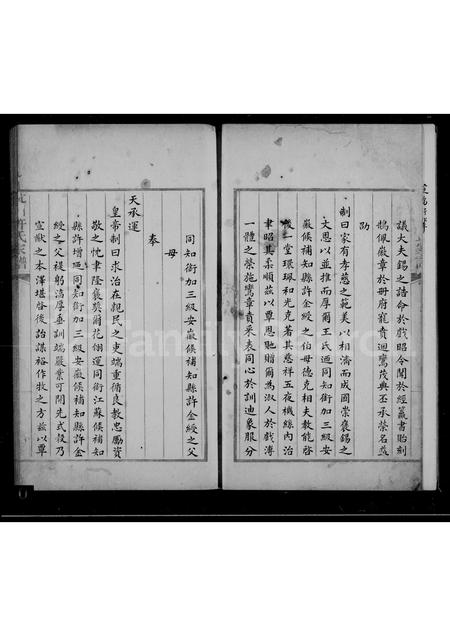 議大夫錫之誥命於戲昭令聞於經籯書貽刻
鵠佩徽章於冊府寵賁迴鸞茂典丕承榮名益
劭
制曰家有孝慈之範美以相濟而成國崇褒錫之
文恩以並推而厚爾王氏迺同知銜加三級安
徽候補知縣許金綬之伯母德克相夫教能啓
後一堂環珮和光克著其慈祥五夜機絲內治
聿昭柔順茲以覃恩貤贈爾為淑人於戲溥
一體之榮施鸞章賁采表同心於訓迪象服分
同知銜加三級安徽候補知縣許金綬之父
母
奉
天承運
皇帝制曰求治在親民之吏端重循良教忠勵資
敬之忱聿隆褒獎爾花翎運同銜江蘇候補知
縣許增迺同知銜加三級安徽候補知縣許金
綬之父褆躬淳厚垂訓端嚴業可開先式穀乃
宣猷之本澤堪啓後詒謀裕作牧之方茲以覃
許氏宗譜